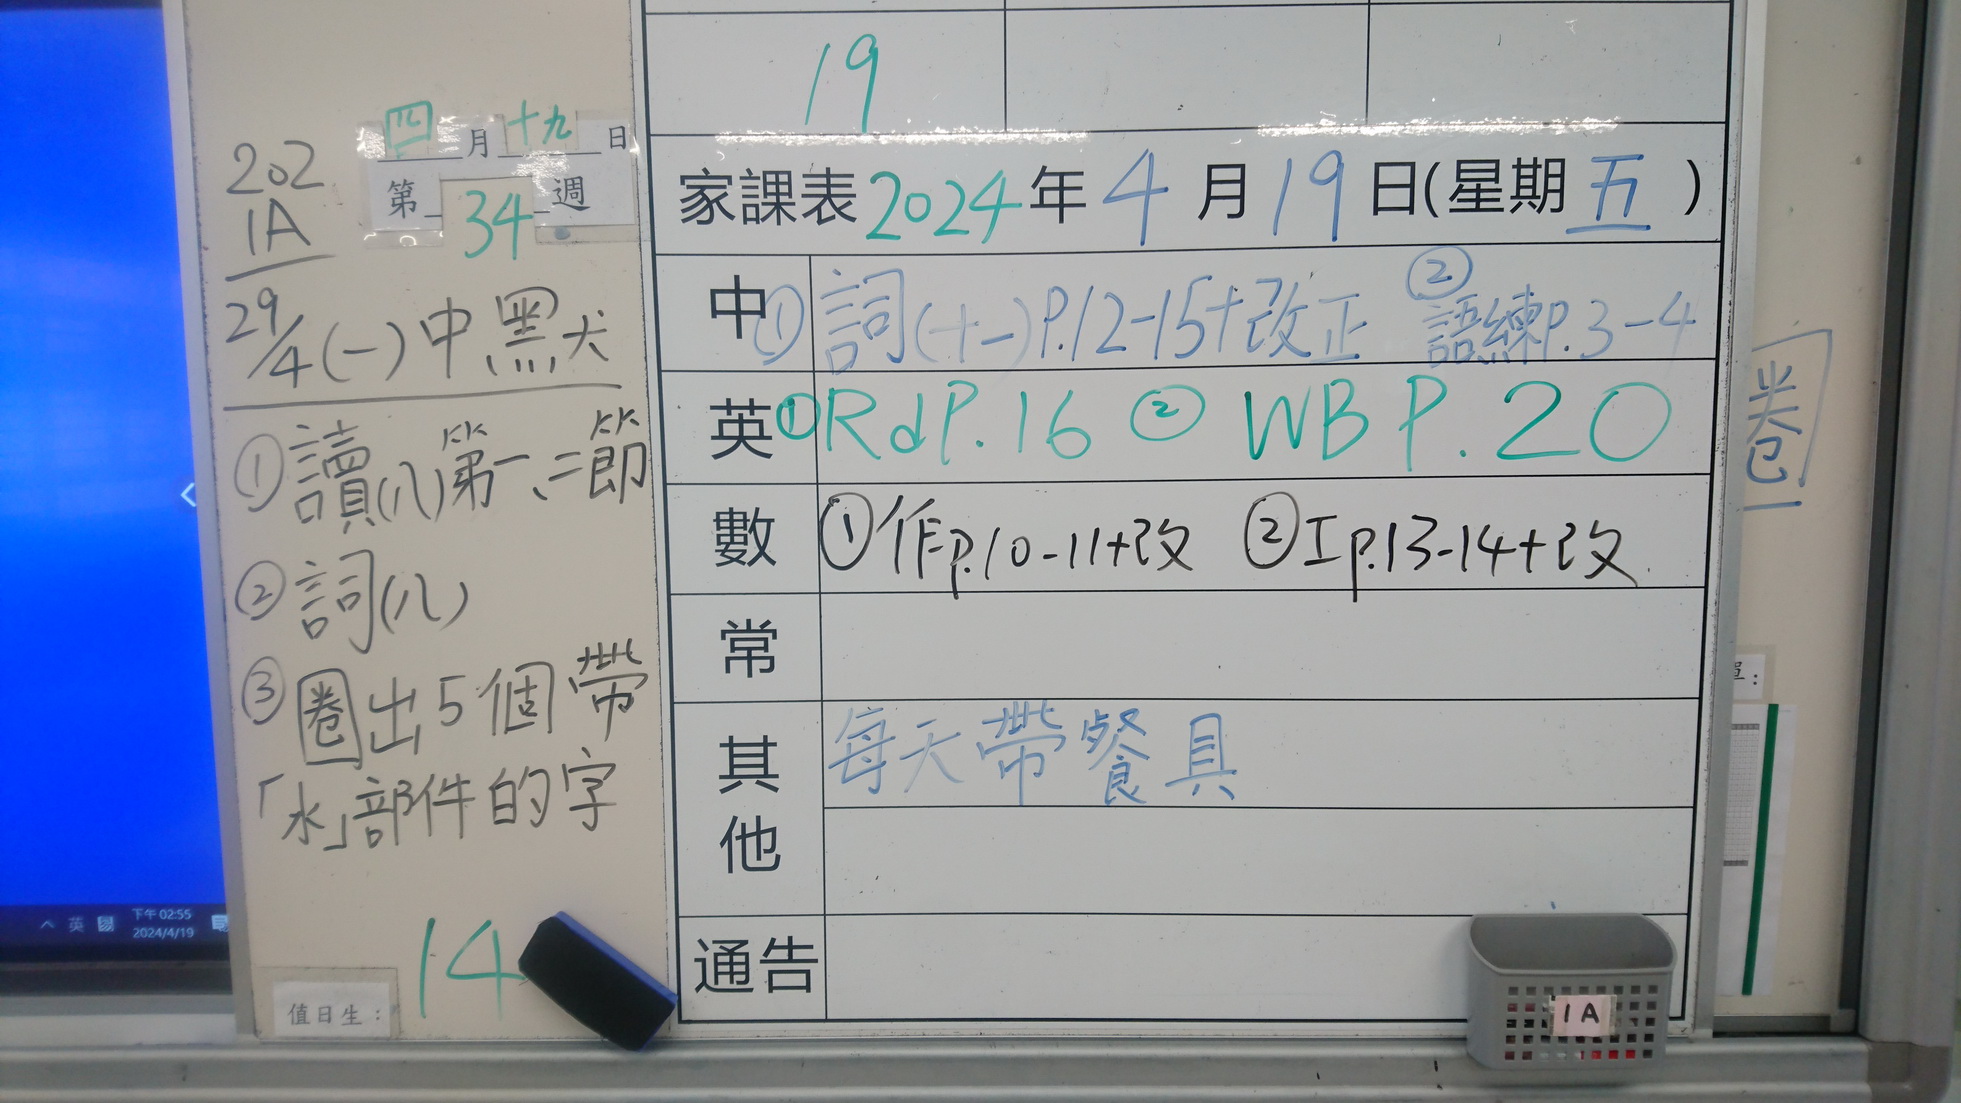 19
四月十九日
第34週
202
1A
29/4(一)中黑犬
①讀(八)第一、二節
②詞(八)
③圈出5個帶
「水」部件的字
14
值日生：
家課表2024年4月19日(星期五)
中 ①詞(十一)P.12-15+改正 ②語練P.3-4
英 ①Rd P.16 ② WB P.20
數 ①作p.10-11+改 ②工p.13-14+改
常
其他 每天帶餐具
通告
1A
圈
英
下午 02:55
2024/4/19